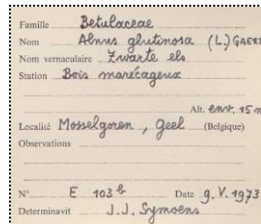 Famille Betulaceae
Nom Alnus glutinosa (L.) GAERT
Nom vernaculaire Zwarte els
Station Bois marécageux
Alt. env. 15 m
Localité Mosselgoren, Geel (Belgique)
Observations
N° E 103 b Date 9.V.1973
Determinavit J.J. Symoens